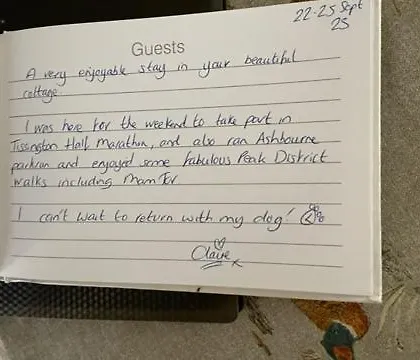 22-25 Sept
25
Guests
A very enjoyable stay in your beautiful
cottage.
I was here for the weekend to take part in
Tissington Hall Marathon, and also ran Ashbourne
parkrun and enjoyed some fabulous Peak District
walks including Mam Tor
I can't wait to return with my dog!
Claire x